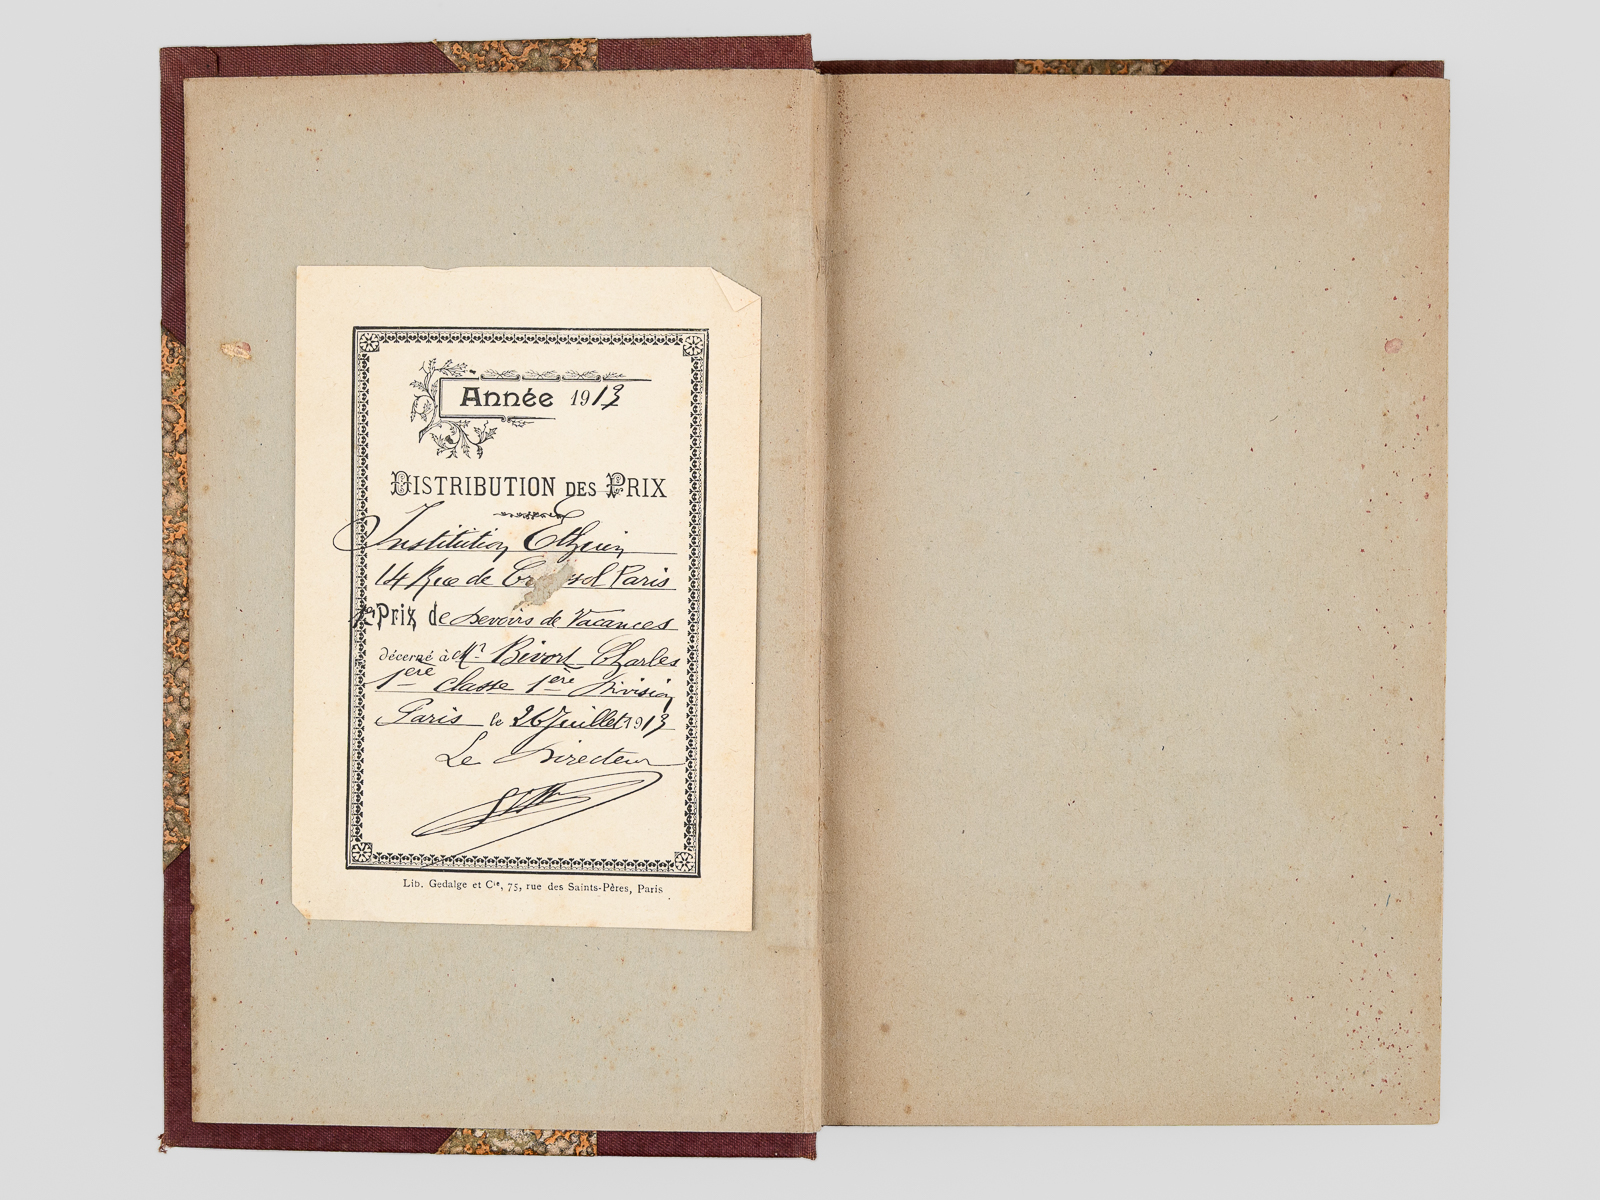 Année 1913
DISTRIBUTION DES PRIX
Institution
14 Rue de Paris
Prix de Devoirs de Vacances
décerné à Mr Bivort Charles
1ère classe 1ère Division
Paris le 26 Juillet 1913
Le Directeur
Lib. Gedalge et Cie, 75, rue des Saints-Pères, Paris